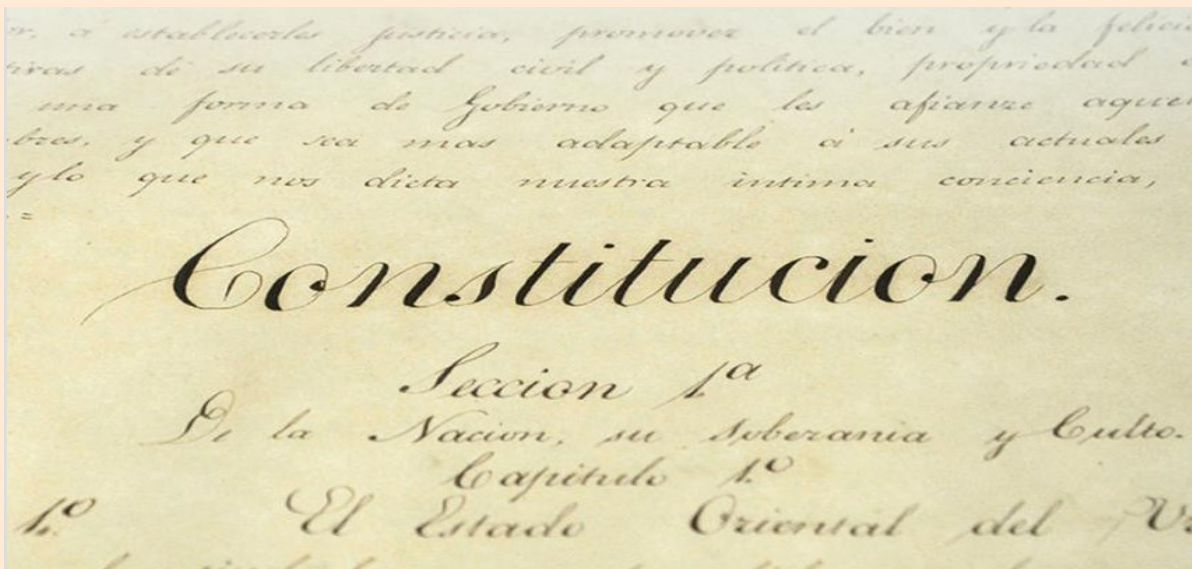 or, á establecerles justicia, promover el bien y la felici
tivas de su libertad civil y politica, propriedad
una forma de Gobierno que les afianze aque
bres, y que sea mas adaptable á sus actuales
y lo que nos dicta nuestra intima conciencia,
=
Constitucion.
Seccion 1ª
De la Nacion, su soberania y Culto.
Capitulo 1º
1º El Estado Oriental del Ur